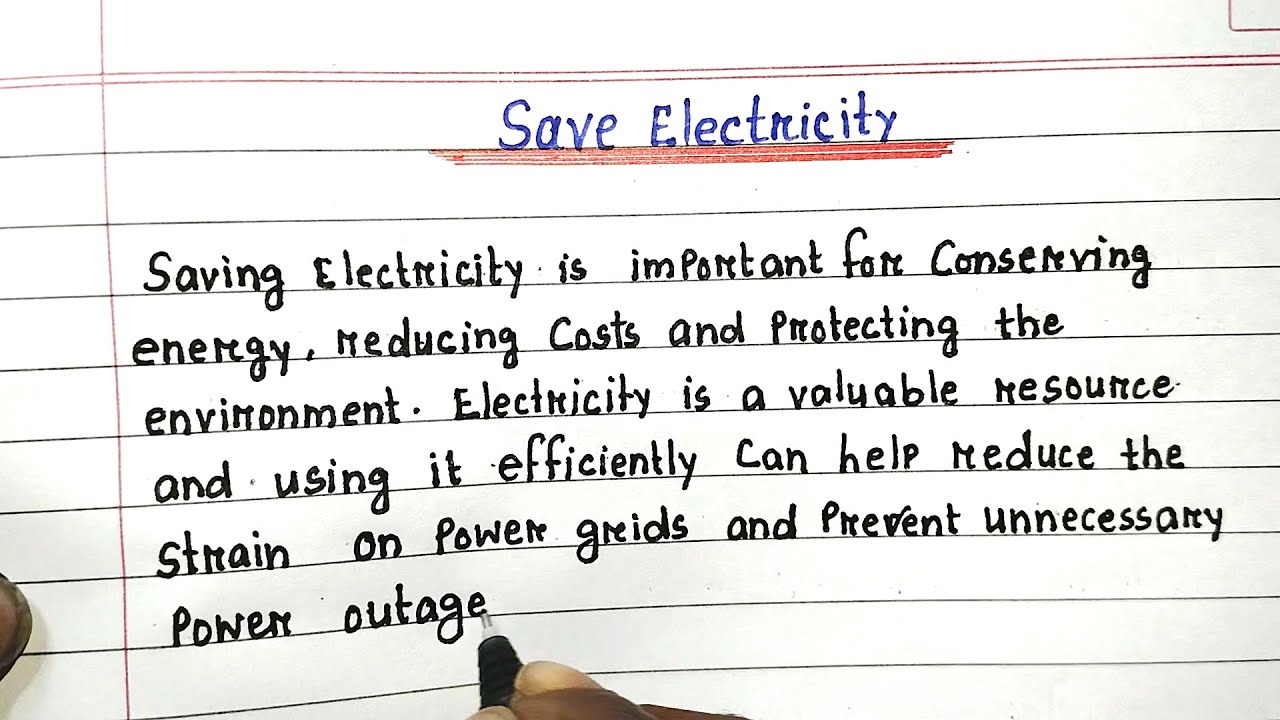 Save Electricity
Saving Electricity is important for Conserving
energy, reducing Costs and Protecting the
environment. Electricity is a valuable resource
and using it efficiently Can help reduce the
Strain on Power grids and Prevent unnecessary
Power outage